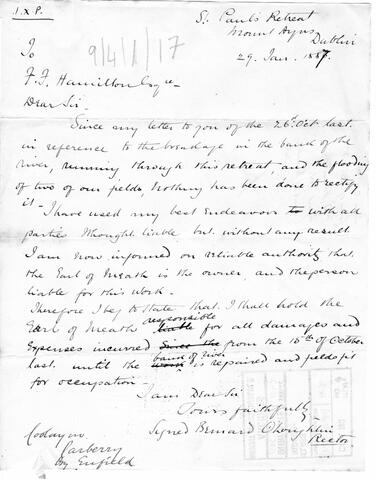 J.X.P.
St. Paul's Retreat
Mount Argus
Dublin
29. Jan. 1887.
9/4/1/17
To
F. F. Hamilton Esqre
Dear Sir -
Since my letter to you of the 26th Oct. last.
in reference to the breadage in the bank of the
river, running through this retreat, and the flooding
of two of our fields, Nothing has been done to rectify
it - I have used my best Endeavors to with all
parties I thought liable but without any result
I am now informed on reliable authority that
the Earl of Meath is the owner, and the person
liable for this work -
Therefore I beg to state that I shall hold the
Earl of Meath liable responsible for all damages and
Expenses incurred Since the from the 15th of October
last. until the work bank of river is repaired and fields fit
for occupation -
I am Dear Sir
Yours faithfully -
Signed Bernard
Rector
Carberry
by Enfield